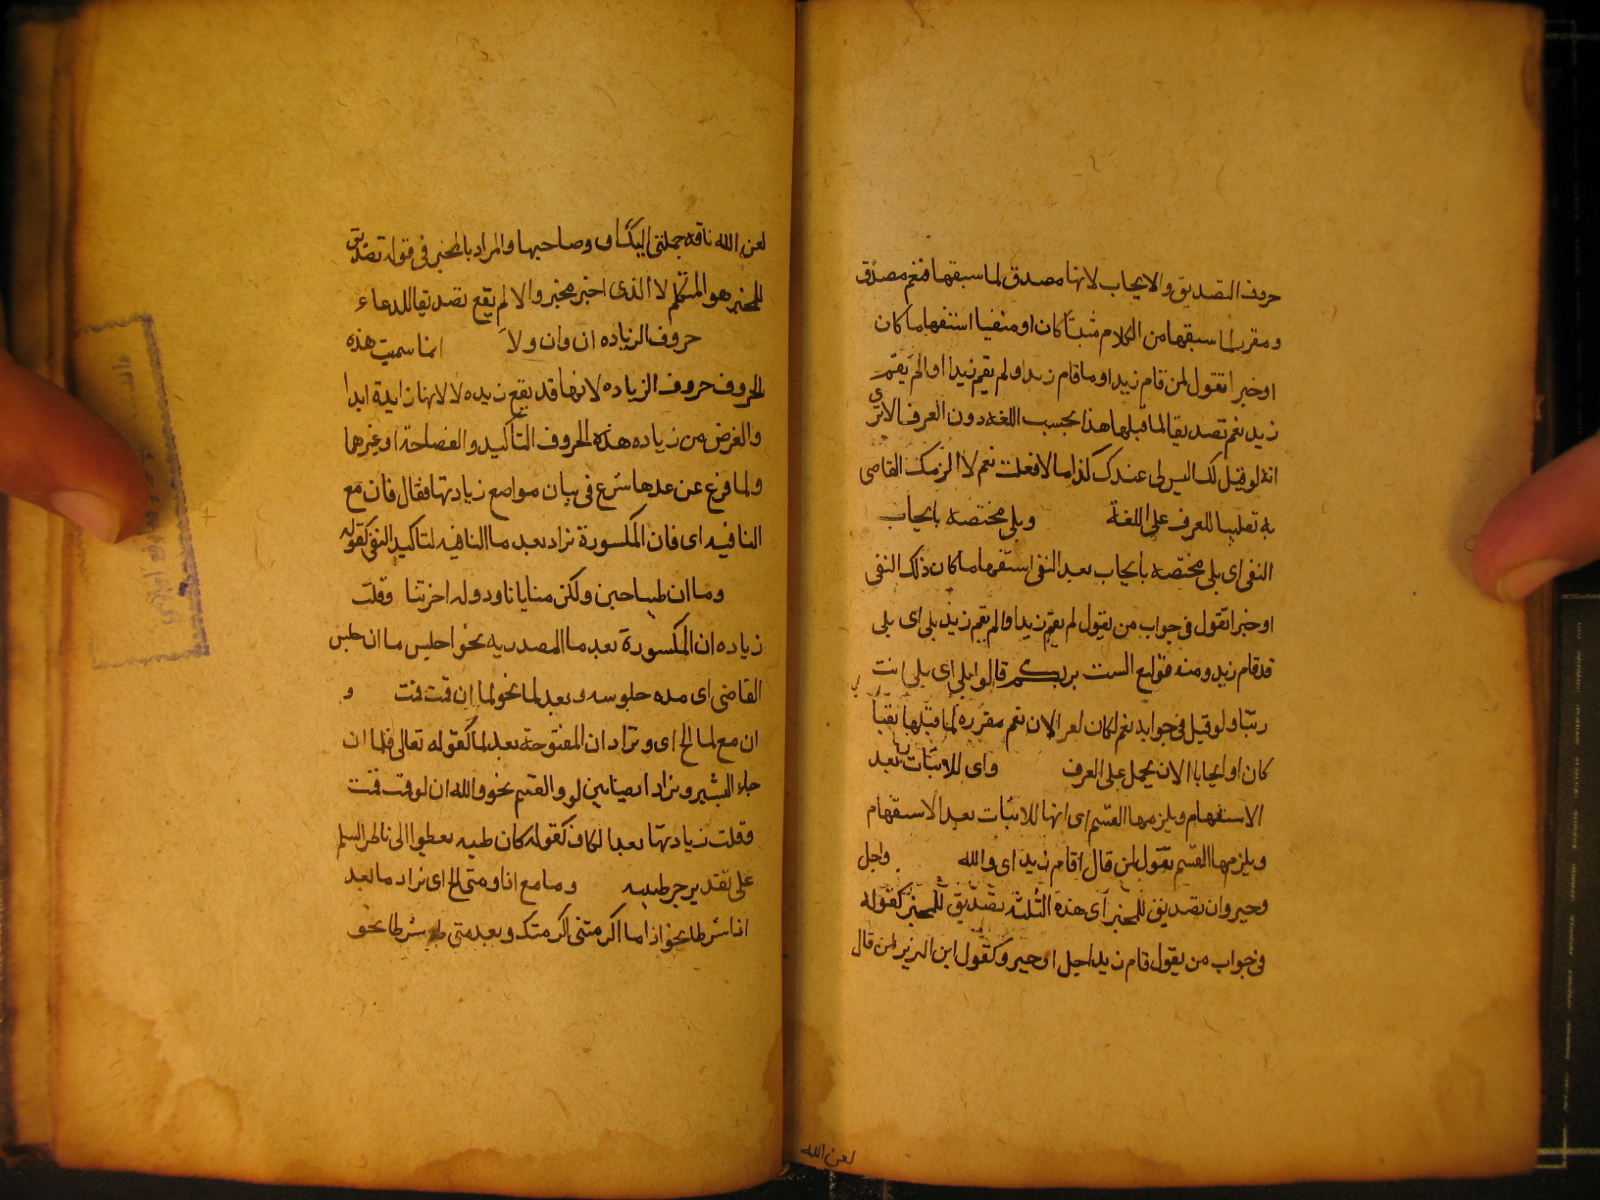 حروف التصديق والايجاب لانها مصدق لما سبقها فنعم مصدق
ومقرر لما سبقها من الكلام مثبتا كان او منفيا استفهاما كان
او خبرا تقول لمن قام زيد او ما قام زيد او لم يقم زيد او الم يقم
زيد نعم تصديقا لما قبلها هذا بحسب اللغه دون العرف الا ترى
انه لو قيل لك اليس لى عندك كذا مالا فقلت نعم لا الزمك القاضى
به تغليبا للعرف على اللغة وبلى مختصه بايجاب
النفى اى بلى مختصه بايجاب بعد النفى استفهاما كان ذلك النفى
او خبرا تقول فى جواب من يقول لم يقم زيد او الم يقم زيد بلى اى بلى
قد قام زيد ومنه قوله تع الست بربكم قالوا بلى اى بلى انت
ربنا ولو قيل فى جوابه نعم لكان كفرا لان نعم مقرره لما قبلها نفيا
كان او ايجابا الا ان يحمل على العرف واى للاثبات بعد
الاستفهام ويلزمها القسم اى انها للاثبات بعد الاستفهام
ويلزمها القسم تقول لمن قال اقام زيد اى والله واجل
وجير وان تصديق للمخبر اى هذه الثلثه تصديق للمخبر كقوله
فى جواب من يقول قام زيد اجل او جير وكقول ابن الزبير لمن قال
لعن الله
لعن الله ناقه حملتنى اليك ان وصاحبها والمراد بالمخبر فى قوله تصديق
للمخبر هو المتكلم لا الذى اخبر مخبر والا لم يقع تصديقا للدعاء
حروف الزياده ان وان ولا انما سميت هذه
الحروف حروف الزياده لانها قد يقع زيده لا لانها زايدة ابدا
والغرض من زياده هذه الحروف التأكيد والفصاحة او غيرهما
ولما فرغ عن عدها شرع فى بيان مواضع زيادتها فقال فان مع
النافيه اى فان المكسورة تزاد بعد ما النافيه لتاكيد النفى كقوله
وما ان طبنا جبن ولكن منايانا ودوله اخرينا وقلت
زياده ان المكسورة بعد ما المصدريه نحو اجلس ما ان جلس
القاضى اى مده جلوسه وبعد لما نحو لما ان قمت قمت و
ان مع لما الخ اى وتزاد ان المفتوحة بعد لما كقوله تعالى فلما ان
جاء البشير وتزاد ايضا بين لو والقسم نحو والله ان لو قمت قمت
وقلت زيادتها بعد الكاف كقوله كان ظبيه تعطوا الى ناظر السلم
على تقدير جر ظبيه وما مع اذا ومتى الخ اى تزاد ما بعد
اذا شرطا نحو اذا ما اكرمتنى اكرمتك وبعد متى شرطا نحو